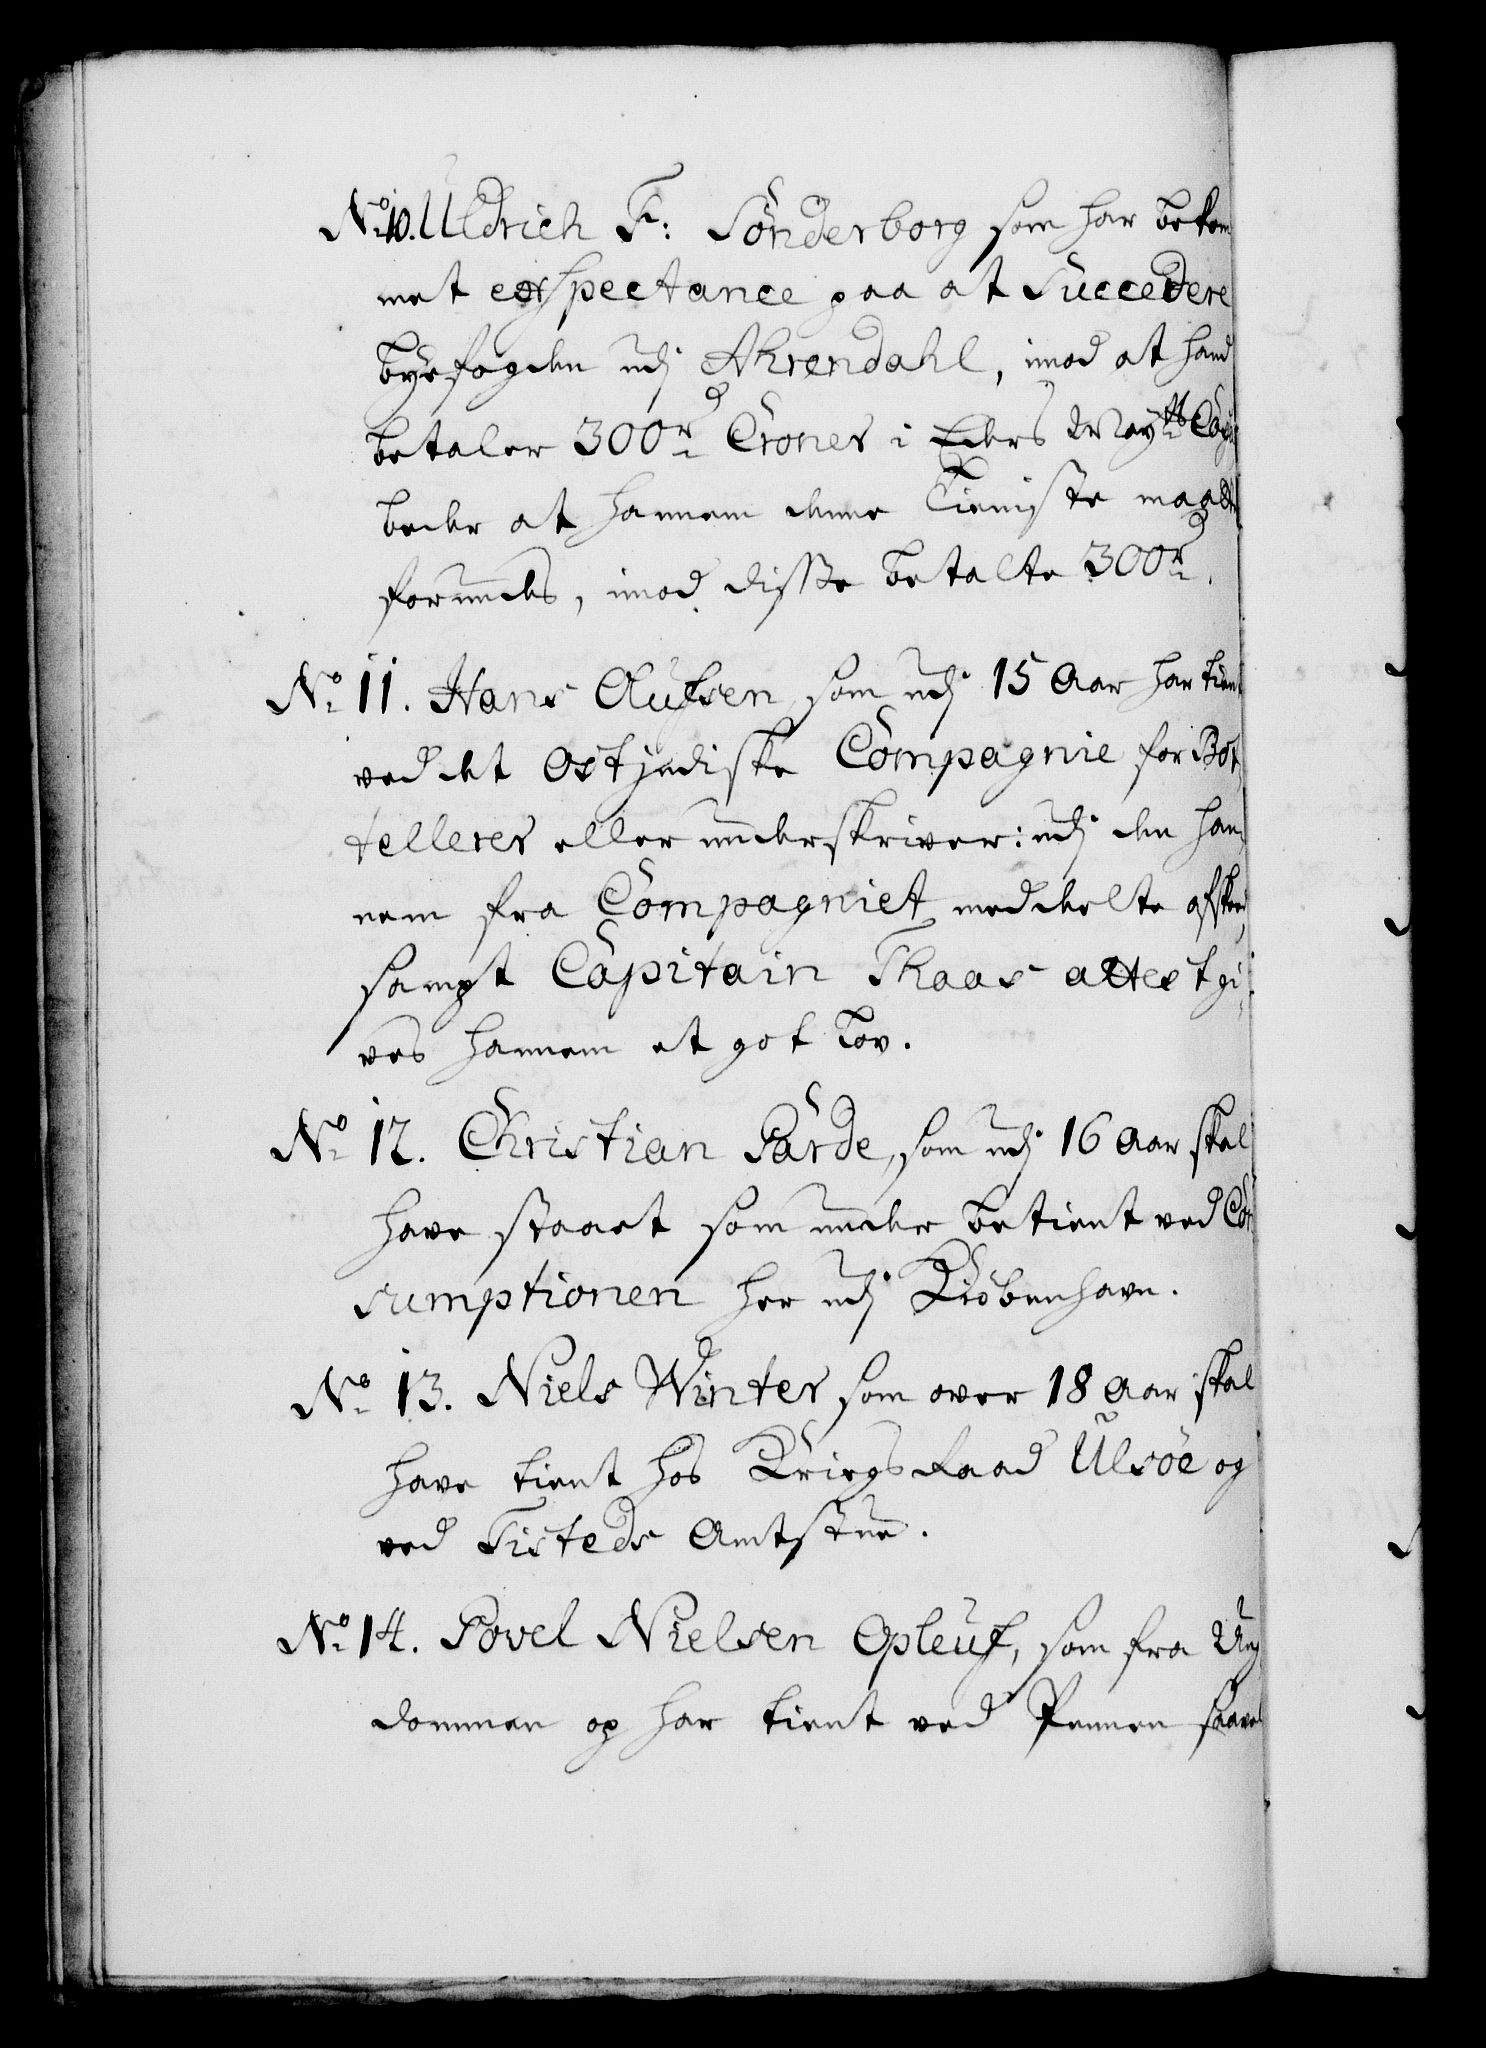 No 10. Uldrich F: Sönderborg som har bekom
met exspectance paa at Succedere
byefogden udj Ahrendahl, imod at hand
betaler 300rd Croner i Eders Maytts Cass
beder at hannem denne Tieniste maatte
forundes, imod disse betalte 300rd.
No 11. Hans Olufsen som udj 15 Aar har tient
ved det Ostjndiske Compagnie for Bot
telleres eller underskriver: udj den han
nem fra Compagniet meddeelte afskeed
sampt Capitain Thaas attest gi
ves hannem et got Lov.
No 12. Christian Parde, som udj 16 Aar skal
have staaet som under betient ved Con
sumptionen her udj Kiöbenhavn.
No 13. Niels Winter som over 18 Aar skal
have tient hos Kriegs Raad Ulsöe og
ved Tisteds Amtstue.
No 14. Povel Nielsen Opleuf, som fra Ung
dommen op har tient ved Pennen saavel